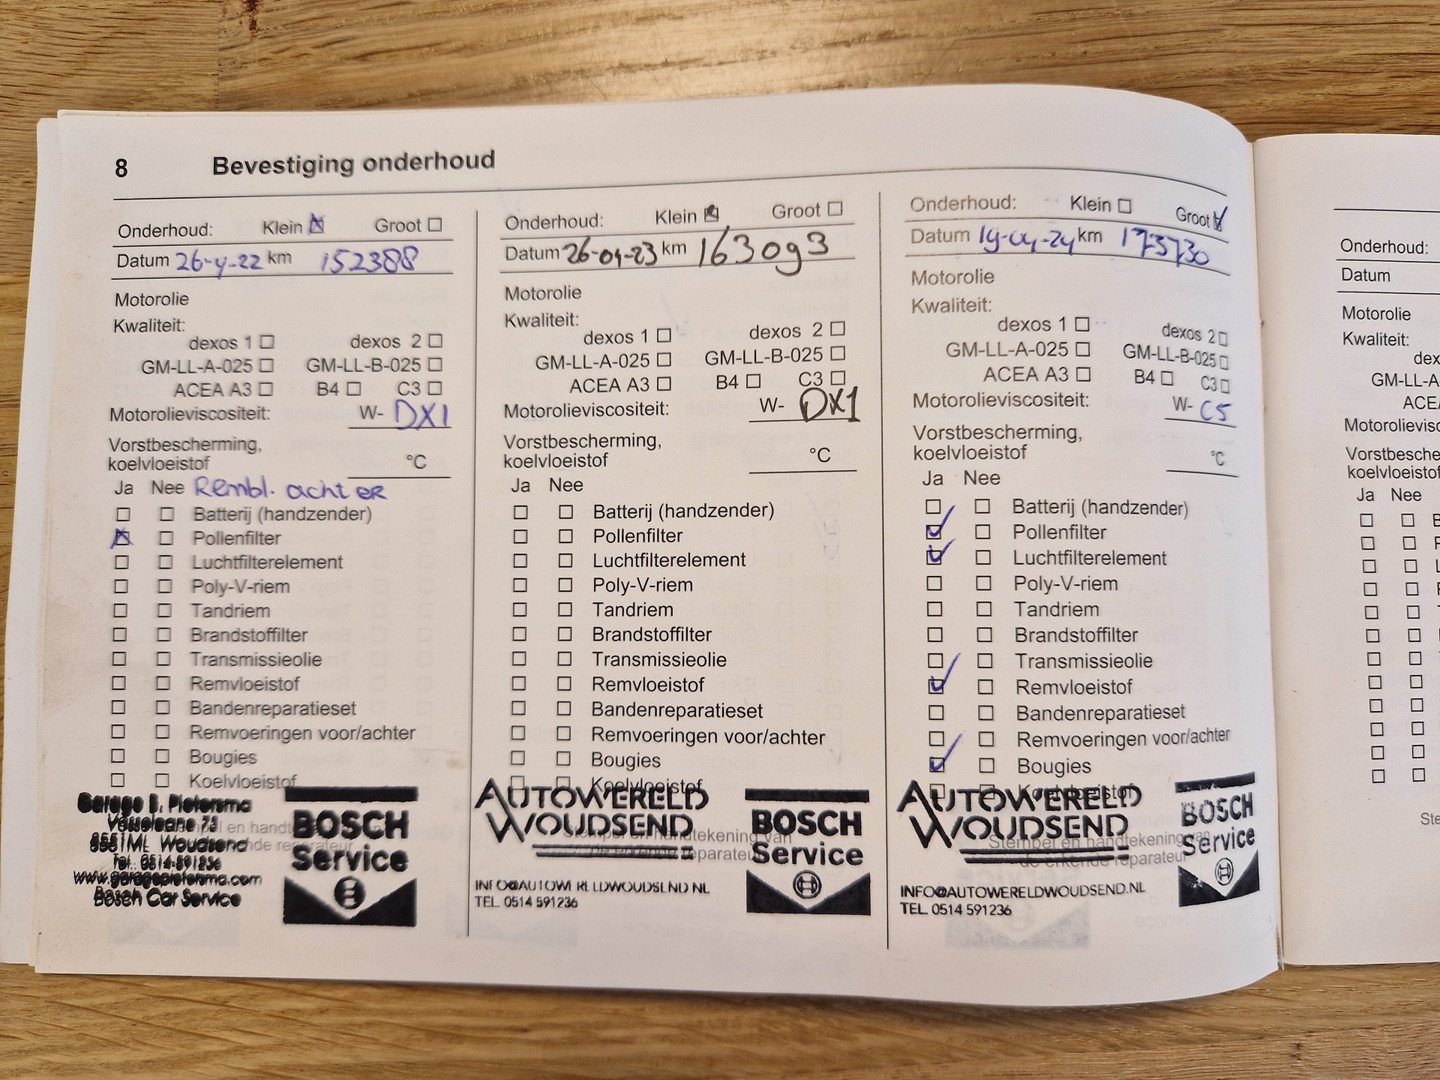 8 Bevestiging onderhoud
Onderhoud: Klein Groot
Datum 26-4-22 km 152388
Motorolie
Kwaliteit:
dexos 1 dexos 2
GM-LL-A-025 GM-LL-B-025
ACEA A3 B4 C3
Motorolieviscositeit: W- DX1
Vorstbescherming,
koelvloeistof °C
Ja Nee Rembl. achter
Batterij (handzender)
Pollenfilter
Luchtfilterelement
Poly-V-riem
Tandriem
Brandstoffilter
Transmissieolie
Remvloeistof
Bandenreparatieset
Remvoeringen voor/achter
Bougies
Koelvloeistof
Garage B. Pietersma
8551ML Woudsend
Tel. 0514-591236
www.garagepietersma.com
Bosch Car Service
BOSCH
Service
Onderhoud: Klein Groot
Datum 26-04-23 km 163093
Motorolie
Kwaliteit:
dexos 1 dexos 2
GM-LL-A-025 GM-LL-B-025
ACEA A3 B4 C3
Motorolieviscositeit: W- DX1
Vorstbescherming,
koelvloeistof °C
Ja Nee
Batterij (handzender)
Pollenfilter
Luchtfilterelement
Poly-V-riem
Tandriem
Brandstoffilter
Transmissieolie
Remvloeistof
Bandenreparatieset
Remvoeringen voor/achter
Bougies
Koelvloeistof
AUTOWERELD
WOUDSEND
Stempel en handtekening van
de erkende reparateur
INFO@AUTOWERELDWOUDSEND.NL
TEL. 0514 591236
BOSCH
Service
Onderhoud: Klein Groot
Datum 19-04-24 km 173730
Motorolie
Kwaliteit:
dexos 1 dexos 2
GM-LL-A-025 GM-LL-B-025
ACEA A3 B4 C3
Motorolieviscositeit: W- C5
Vorstbescherming,
koelvloeistof °C
Ja Nee
Batterij (handzender)
Pollenfilter
Luchtfilterelement
Poly-V-riem
Tandriem
Brandstoffilter
Transmissieolie
Remvloeistof
Bandenreparatieset
Remvoeringen voor/achter
Bougies
Koelvloeistof
AUTOWERELD
WOUDSEND
Stempel en handtekening van
de erkende reparateur
INFO@AUTOWERELDWOUDSEND.NL
TEL. 0514 591236
BOSCH
Service
Onderhoud:
Datum
Motorolie
Kwaliteit:
dex
GM-LL-A
ACEA
Motorolievisc
Vorstbesche
koelvloeistof
Ja Nee